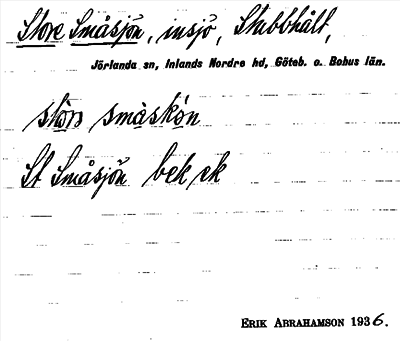 Store Småsjön, insjö, Stubbhålt,
Jörlanda sn, Inlands Nordre hd, Göteb. o. Bohus län.
småskȯn
St Småsjön bek ek
ERIK ABRAHAMSON 1936.